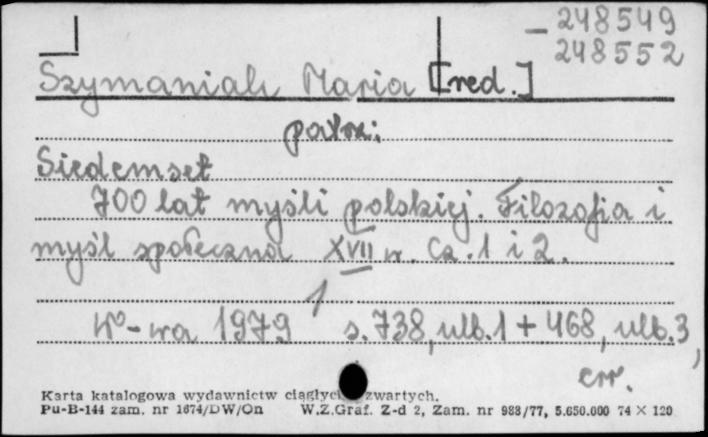 – 248549
248552
Szymaniak Maria [red.]
patrz:
Siedemset
700 lat myśli polskiej. Filozofia i
myśl społeczna XVII w. Cz. 1 i 2.
W-wa 1979 s. 738, ulb. 1 + 468, ulb. 3,
err.
Karta katalogowa wydawnictw ciągłych zwartych.
Pu-B-144 zam. nr 1674/DW/On W.Z.Graf. Z-d 2, Zam. nr 988/77, 5.650.000 74 × 120